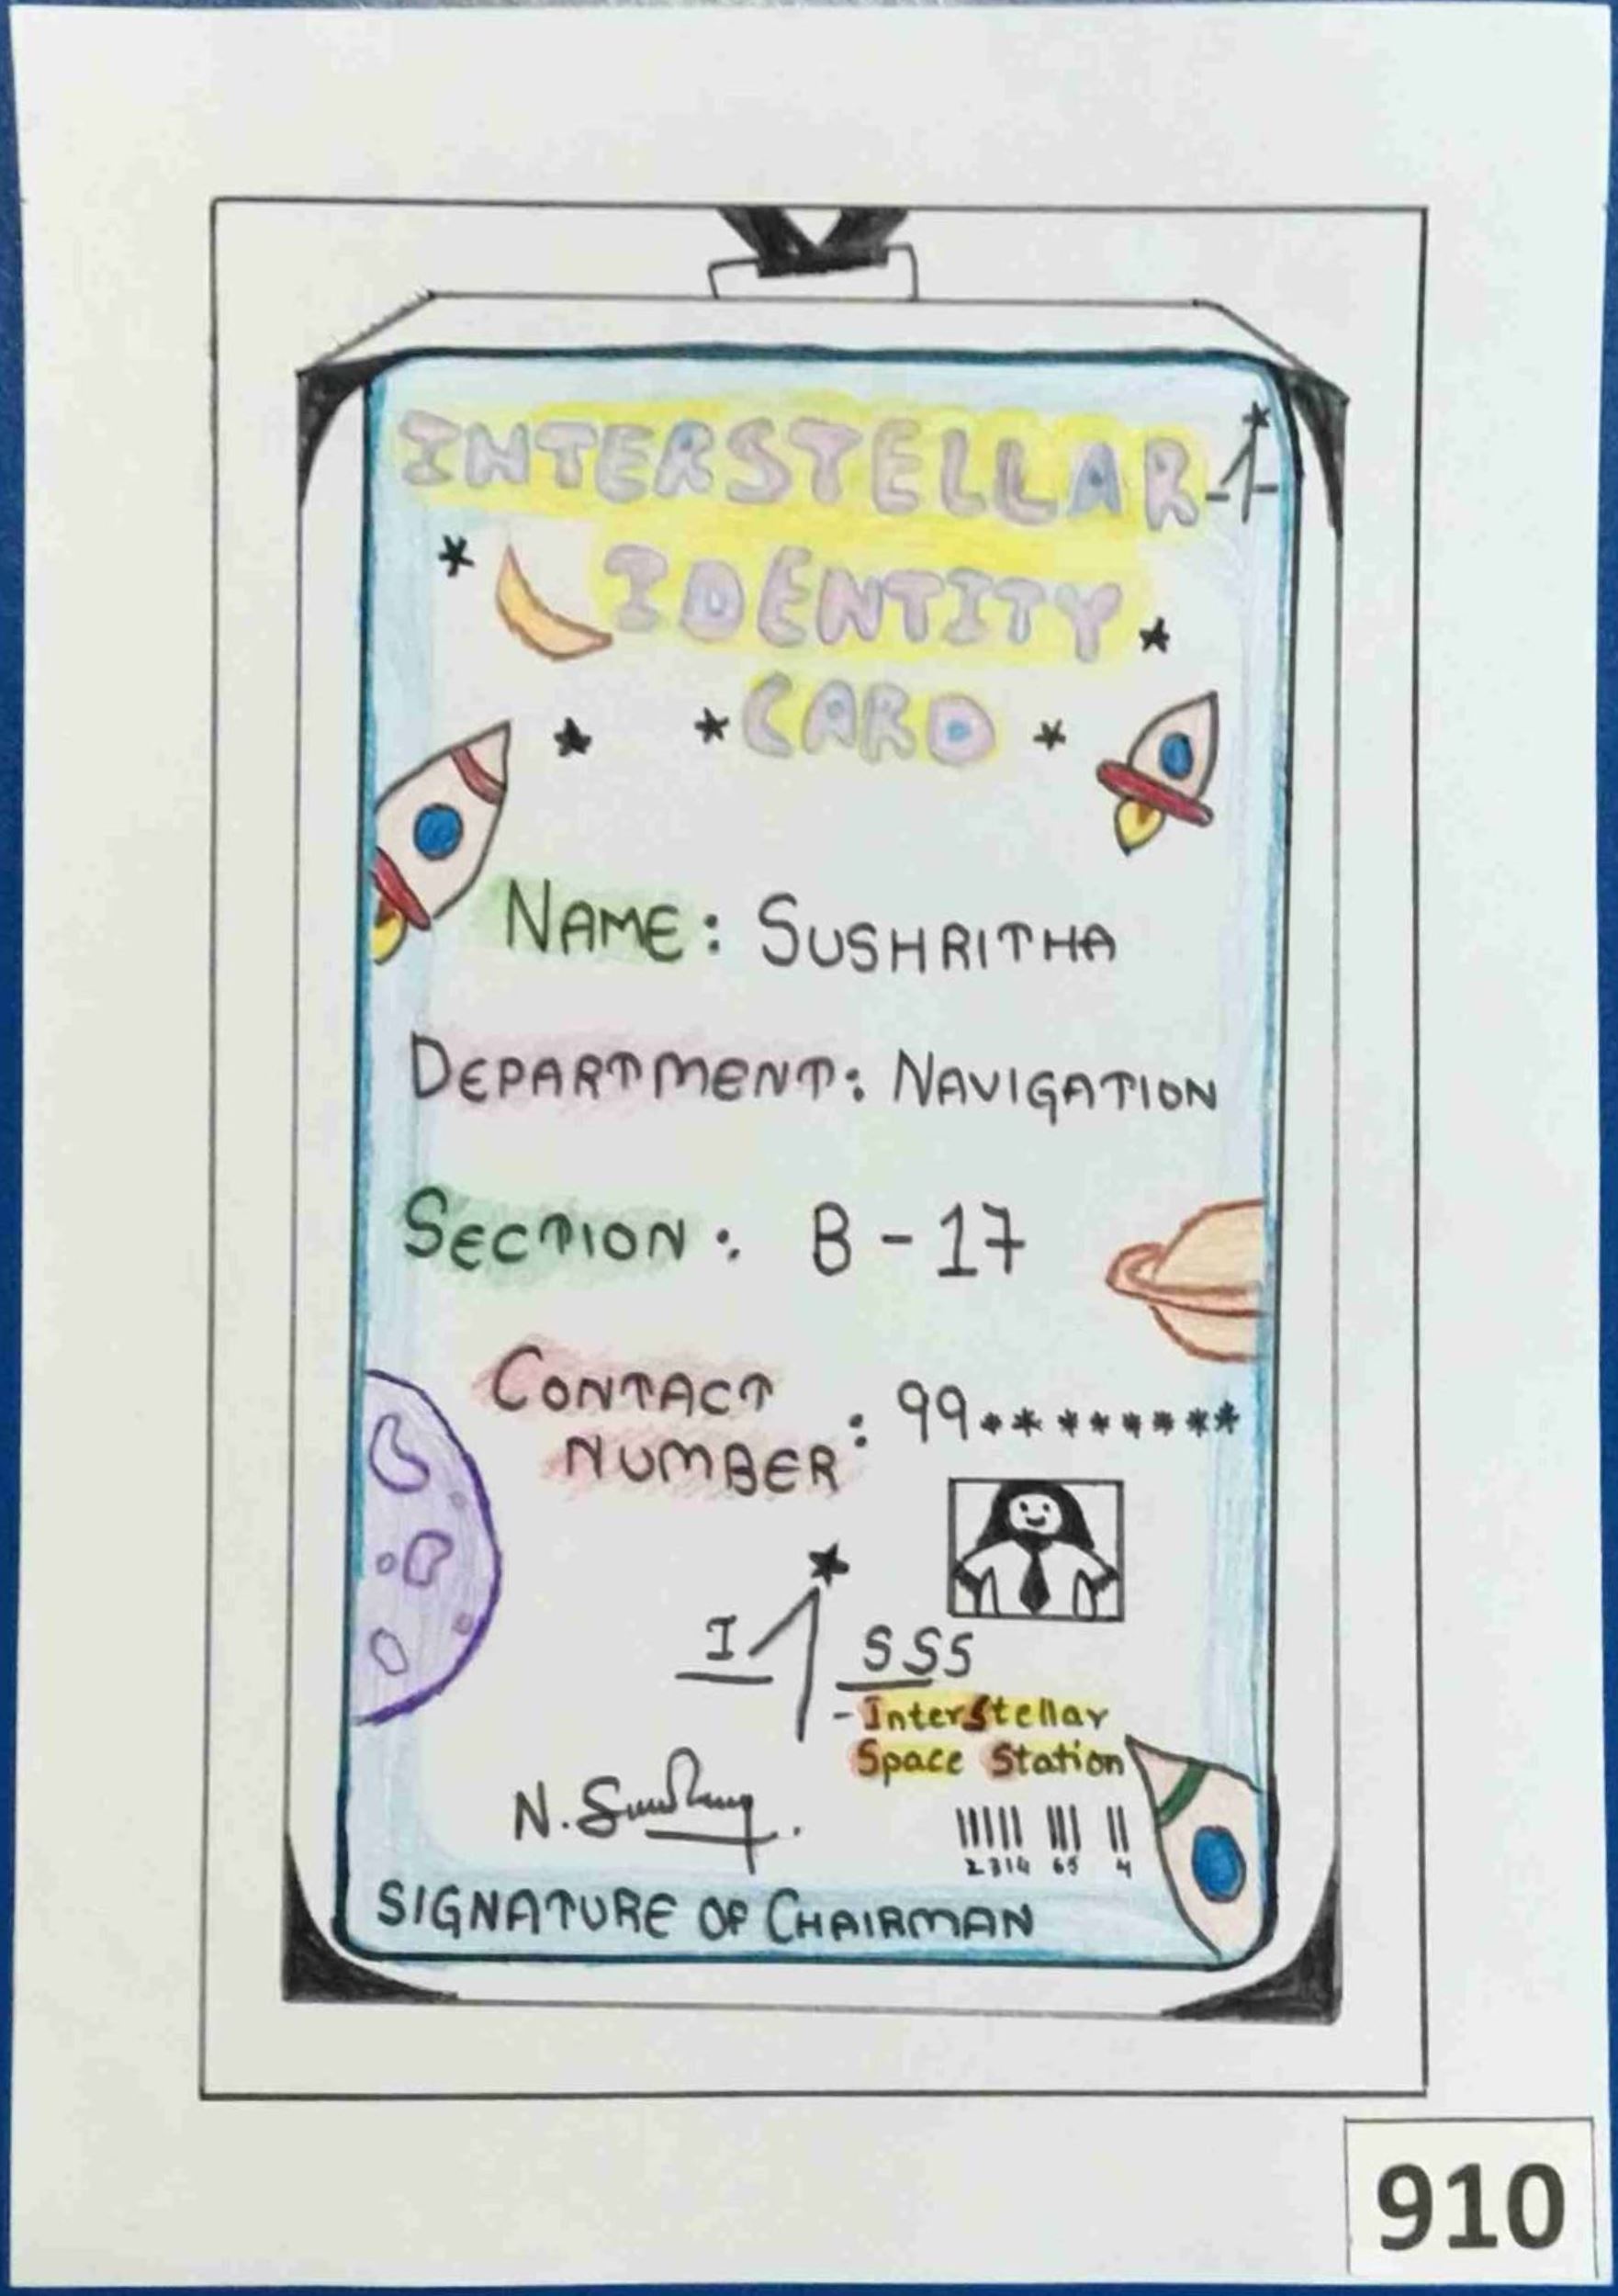 INTERSTELLAR
IDENTITY
CARD
NAME: SUSHRITHA
DEPARTMENT: NAVIGATION
SECTION: B-17
CONTACT NUMBER: 99********
I SSS
-Interstellar
Space Station
N.
2314 65 4
SIGNATURE OF CHAIRMAN
910